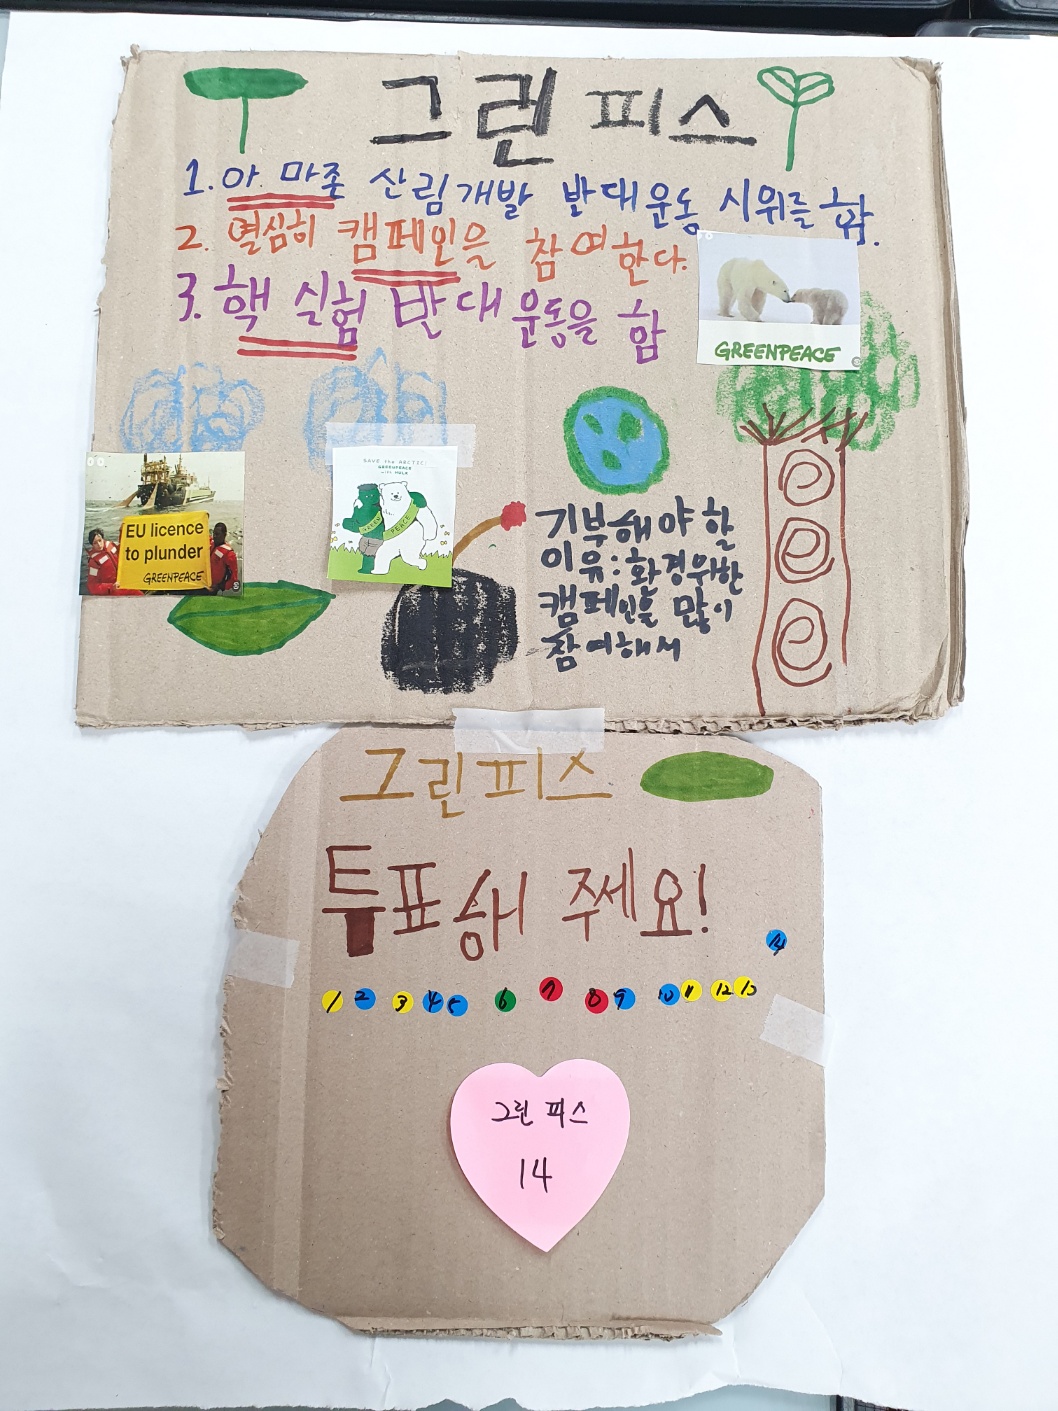 그린피스
1. 아마존 산림개발 반대운동 시위를 함.
2. 열심히 캠페인을 참여한다.
3. 핵 실험 반대 운동을 함
GREENPEACE
SAVE the ARCTIC!
GREENPEACE
with HULK
GREEN PEACE
EU licence
to plunder
GREENPEACE
기부해야 할
이유: 환경위한
캠페인을 많이
참여해서
그린피스
투표해 주세요!
14
1 2 3 4 5 6 7 8 9 10 11 12 13
그린 피스
14